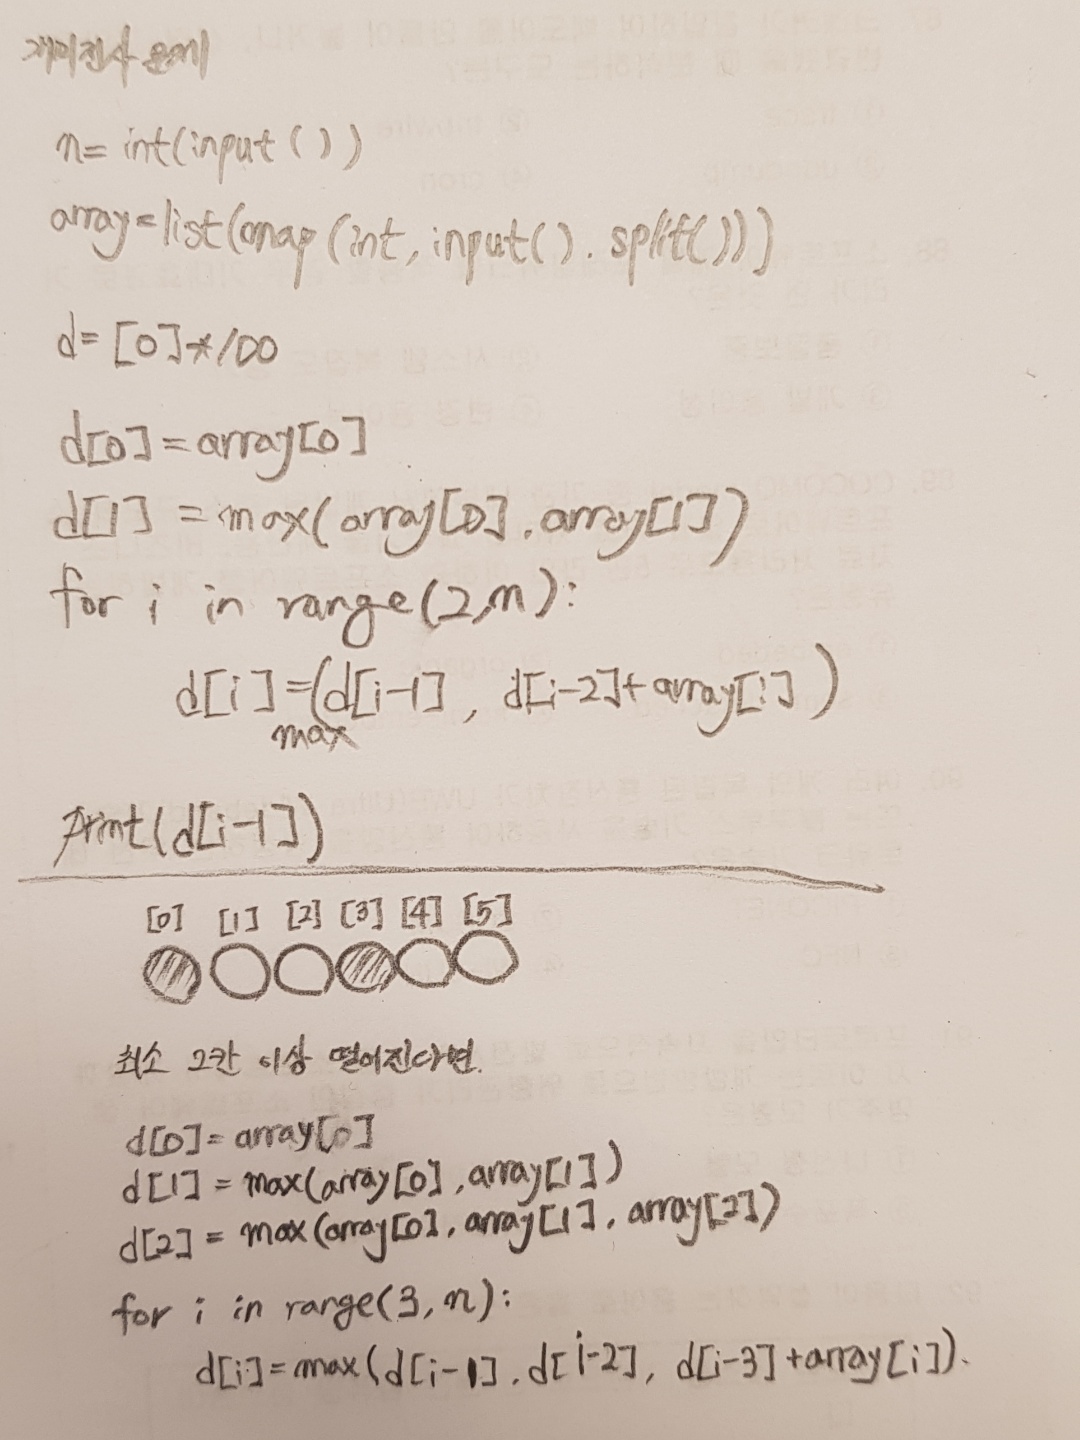 개미전사 문제
n= int(input ( ))
array=list(map(int, input().split()))
d= [0]*100
d[0]=array[0]
d[1] =max(array[0],array[1])
for i in range(2,n):
d[i]=(d[i-1], d[i-2]+array[i])
max
print(d[i-1])
[0] [1] [2] [3] [4] [5]
최소 2칸 이상 떨어진다면.
d[0]= array[0]
d[1] = max(array[0],array[1])
d[2] = max(array[0], array[1], array[2])
for i in range(3,n):
d[i]=max(d[i-1], d[i-2], d[i-3]+array[i]).